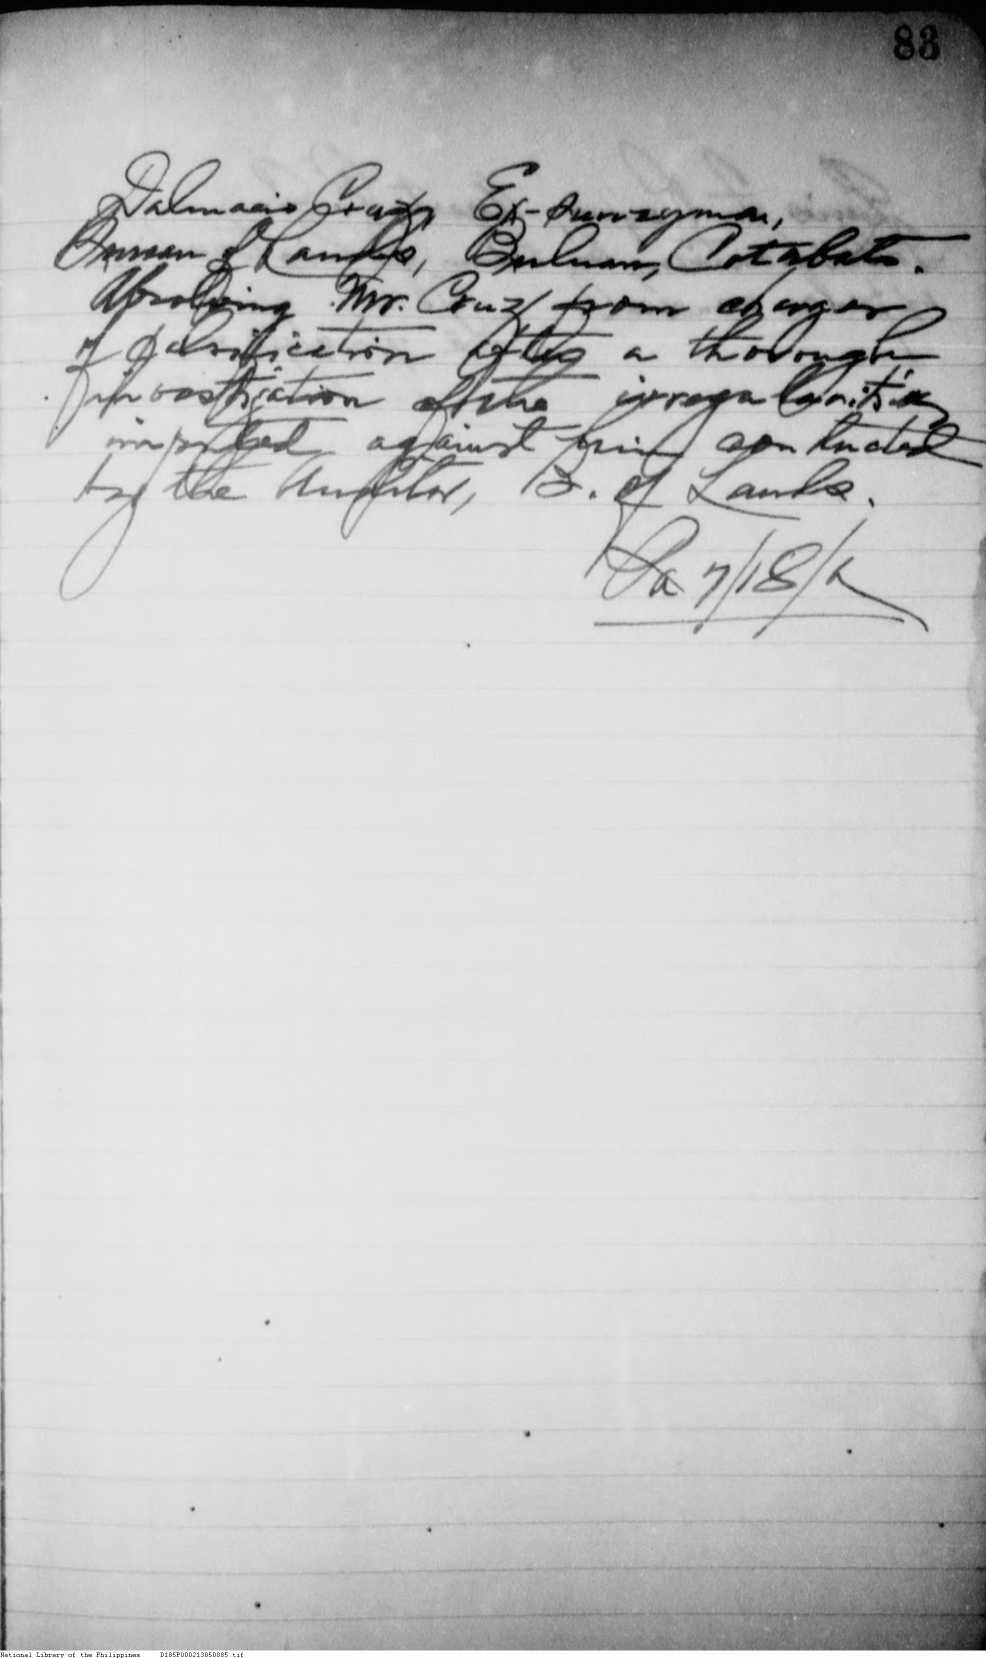 83
Dalmacio Cruz, Ex-surveyman,
Bureau of Lands, Buluan, Cotabato.
Absolving Mr. Cruz from charges
of falsification after a thorough
investigation of the irregularities
imputed against him conducted
by the Auditor, B. of Lands.
7/18/
National Library of the Philippines D185P000213850085.tif